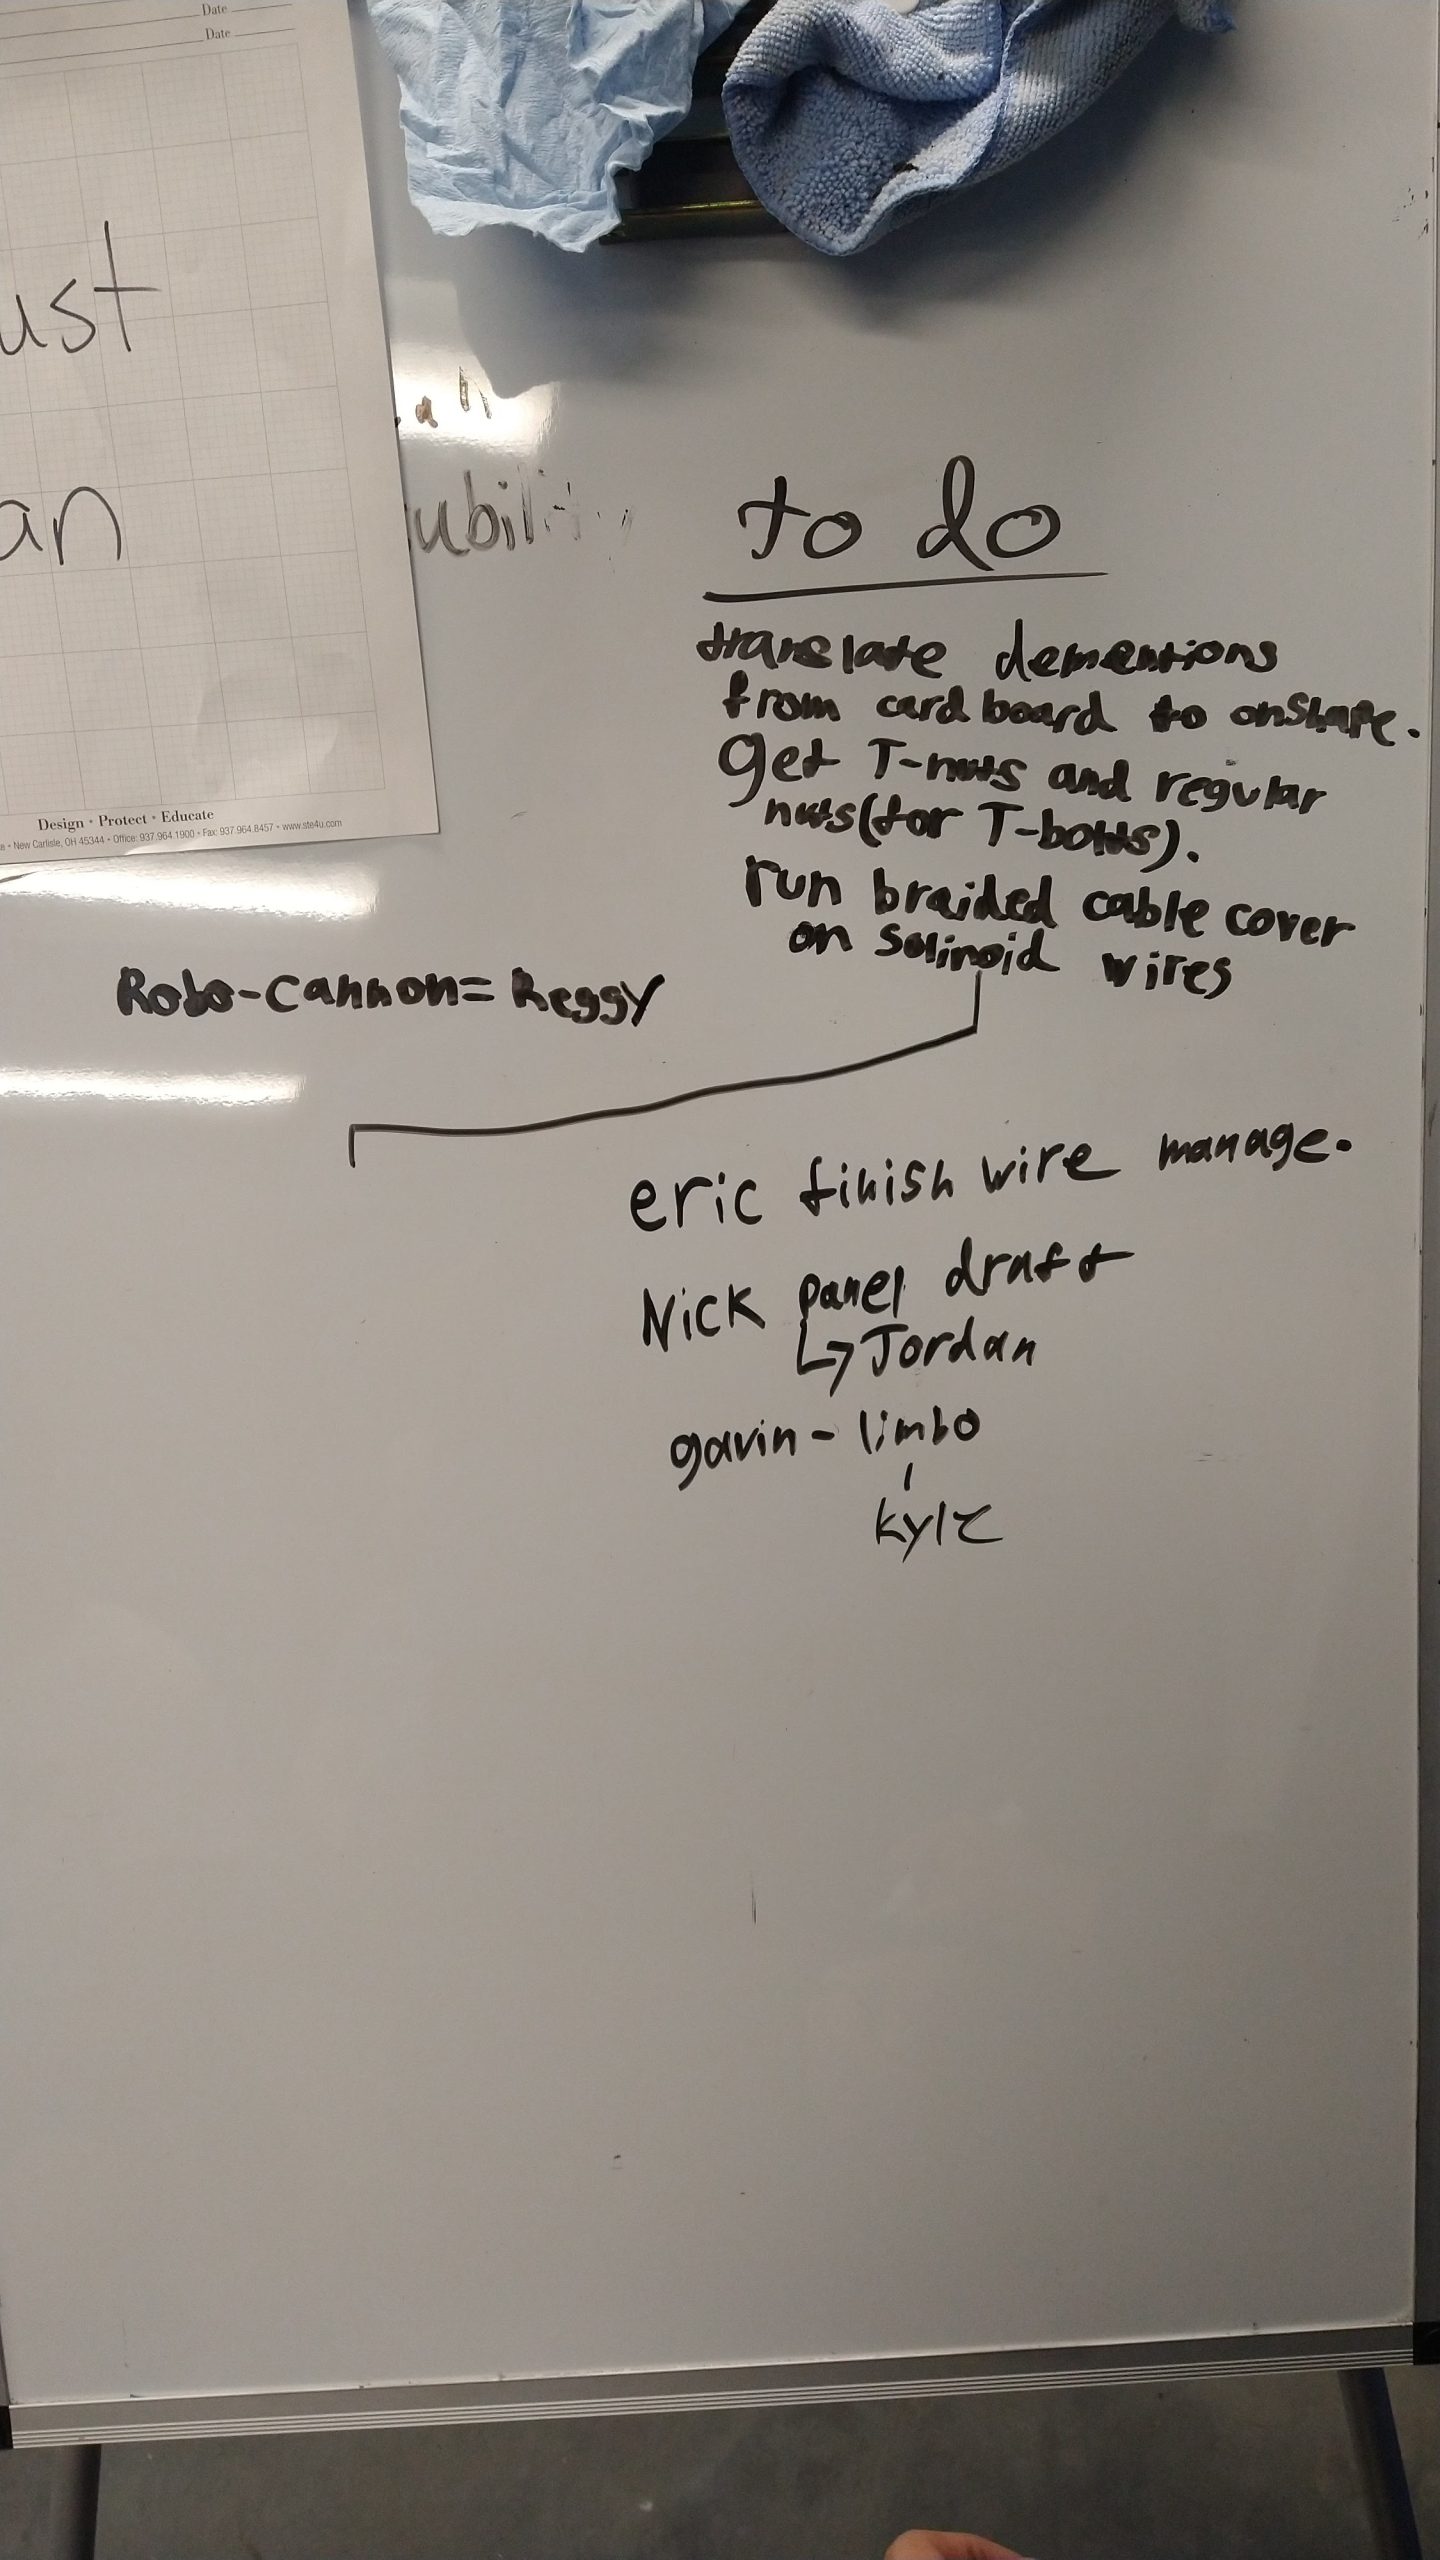 Date
Date
ust
an
Design • Protect • Educate
New Carlisle, OH 45344 • Office: 937.964.1900 • Fax: 937.964.8457 • www.ste4u.com
to do
translate dementions
from cardboard to onshape.
get T-nuts and regular
nuts (for T-bolts).
run braided cable cover
on solinoid wires
Robo-cannon= Reggy
eric finish wire manage.
Nick panel draft
↳ Jordan
gavin - limbo
kyle